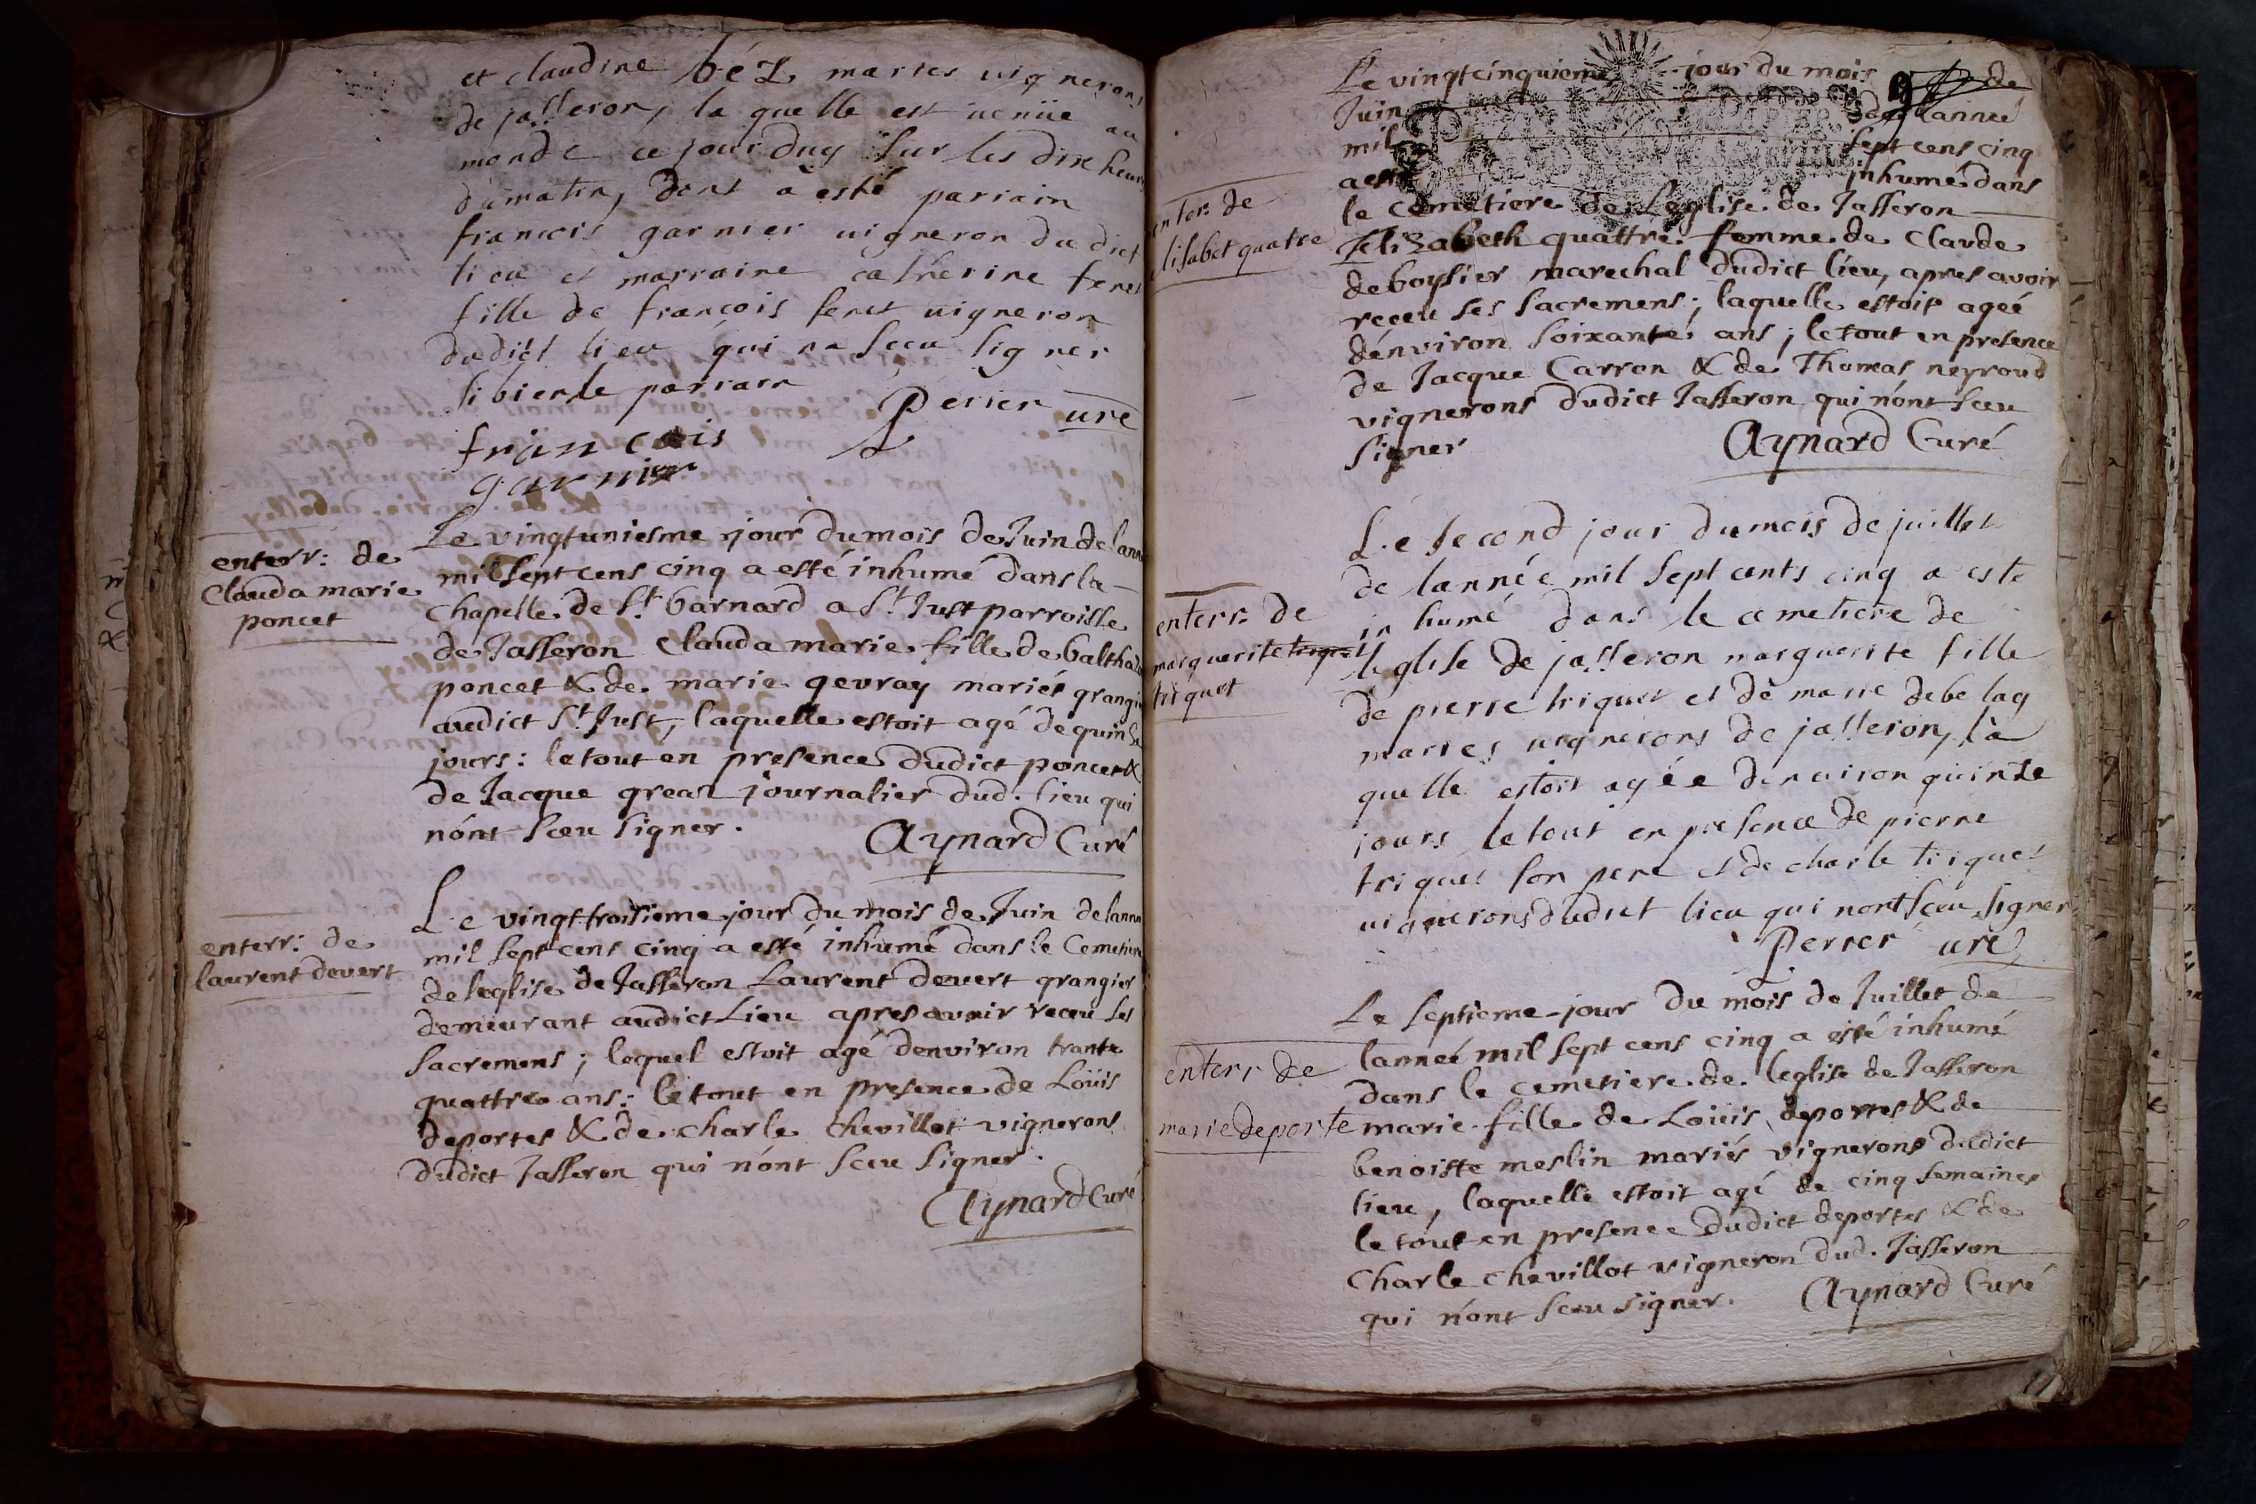 et claudine béz maries vignerons
de jasseron, la quelle est venüe au
monde ce jourduy sur les dix heures
du matin, dont à esté parrain
francois garnier vigneron dudict
lieu et marraine catherine feret
fille de françois feret vigneron
dudict lieu qui na sceu signer
si bien le parrain
Perier
francois
garnier
enterr: de
Clauda marie
poncet
Le vingtuniesme jour du mois de Juin de lanne
mil sept cens cinq a esté inhumé dans la
chapelle de St barnard a St Just parroisse
de Jasseron Clauda marie fille de baltha
poncet & de marie gevray mariés grangi
audict St Just, laquelle estoit agé de quinze
jours: le tout en presence dudict poncet &
de Jacque grean journalier dud. lieu qui
n'ont sceu signer.
Aynard Curé
enterr: de
laurent devert
Le vingt troisieme jour du mois de Juin de lanne
mil sept cens cinq a esté inhumé dans le Cemetiere
de leglise de Jasseron Laurent devert grangier
demeurant audict Lieu apres avoir receu ses
sacremens; lequel estoit agé denviron trante
quattre ans: le tout en presence de Loüis
deportes & de charle chevillot vignerons
dudict Jasseron qui n'ont sceu signer.
Aynard Curé
Le vingtcinquieme jour du mois de
Juin de lanneé
mil sept cens cinq
a esté inhumé dans
le cemetiere de Leglise de Jasseron
enter: de
elisabet quatre
Elizabeth quattre femme de Claude
deboysier marechal dudict lieu, apres avoir
receu ses sacremens; laquelle estoit ageé
d'environ soixante ans; le tout en presence
de Jacque Carron & de Thomas neyroud
vignerons dudict Jasseron qui n'ont sceu
signer
Aynard Curé
enterr: de
marguerite
triquet
Le second jour du mois de juillet
de lannéé mil sept cents cinq a este
in humé dans le cemetiere de
leglise de jasseron marguerite fille
de pierre triquet et de marie debelay
maries vignerons de jasseron, la
quelle estoit agéé denviron quinze
jours le tout en presence de pierre
triquet son pere et de charle triquet
vignerons dudict lieu qui nont sceu signer
Perrer
enterr de
marie deporte
Le septieme jour du mois de Juillet de
lanneé mil sept cens cinq a esté inhumé
dans le cemetiere de leglise de Jasseron
marie fille de Loüis deportes & de
benoiste meslin mariés vignerons dudict
lieu, laquelle estoit agé de cinq semaines
le tout en presence dudict deportes & de
Charle chevillot vigneron dud. Jasseron
qui n'ont sceu signer.
Aynard Curé